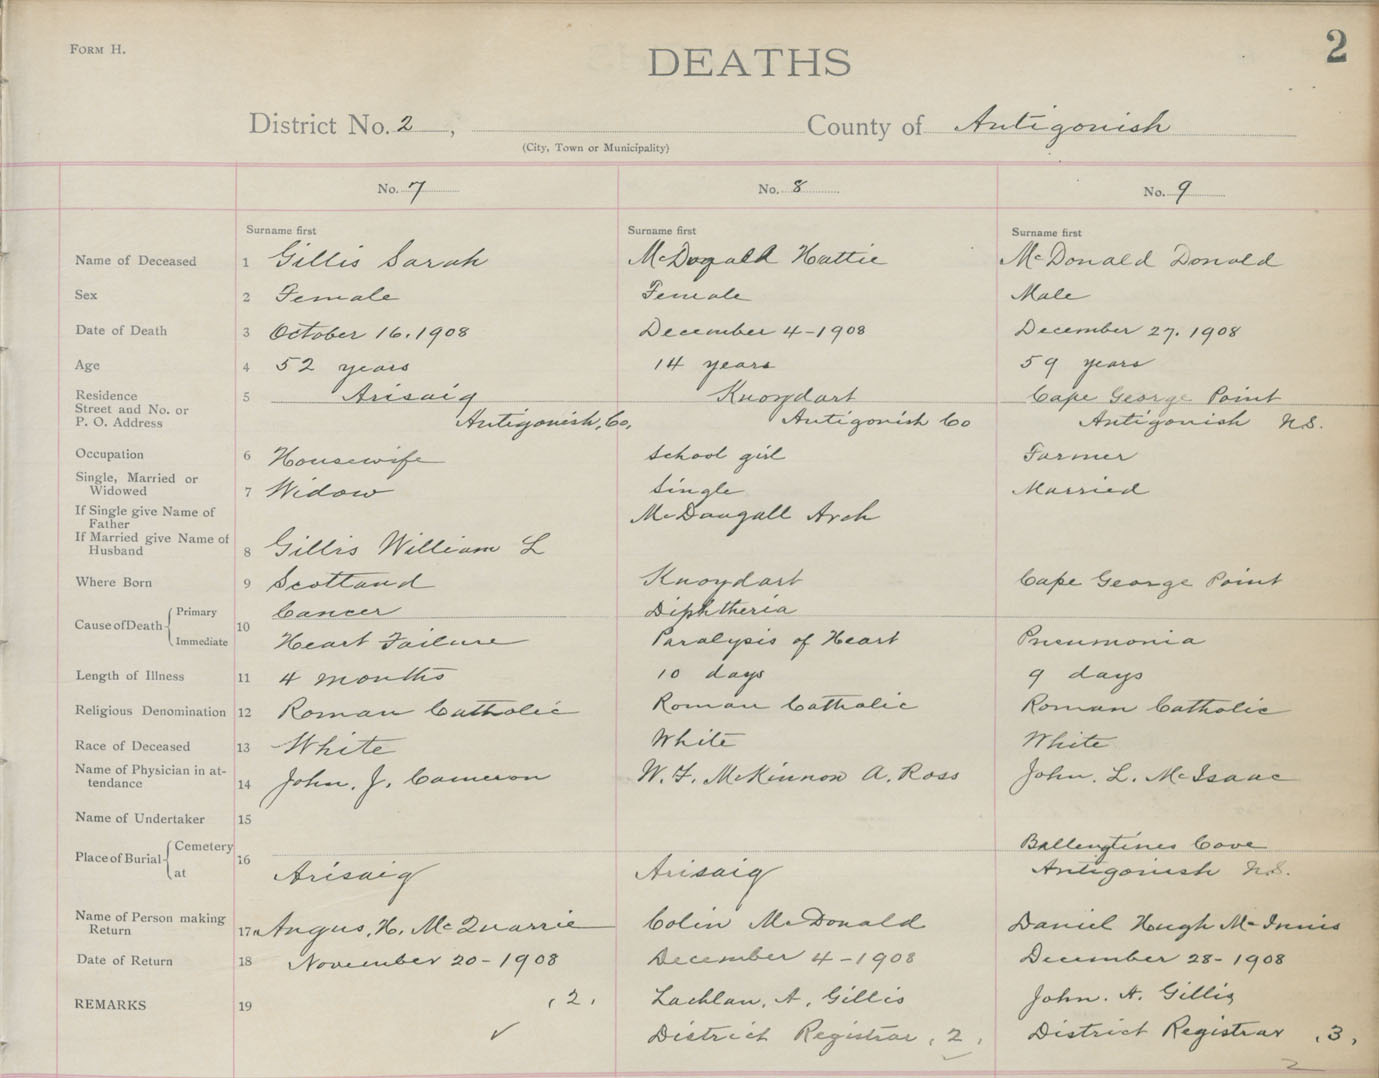 FORM H.
DEATHS
2
District No. 2, County of Antigonish
(City, Town or Municipality)
No. 7 No. 8 No. 9
Surname first Surname first Surname first
Name of Deceased 1 Gillis Sarah McDogald Hattie McDonald Donald
Sex 2 Female Female Male
Date of Death 3 October 16, 1908 December 4-1908 December 27. 1908
Age 4 52 years 14 years 59 years
Residence 5 Arisaig Knoydart Cape George Point
Street and No. or
P. O. Address Antigonish, Co, Antigonish Co Antigonish N.S.
Occupation 6 Housewife School girl Farmer
Single, Married or
Widowed 7 Widow Single Married
If Single give Name of
Father McDougall Arch
If Married give Name of
Husband 8 Gillis William L
Where Born 9 Scotland Knoydart Cape George Point
Cause of Death 10 Primary Cancer Diphtheria
Immediate Heart Failure Paralysis of Heart Pneumonia
Length of Illness 11 4 months 10 days 9 days
Religious Denomination 12 Roman Catholic Roman Catholic Roman Catholic
Race of Deceased 13 White White White
Name of Physician in at-
tendance 14 John. J. Cameron W. F. McKinnon A. Ross John. L. McIsaac
Name of Undertaker 15
Place of Burial 16 Cemetery Ballentines Cove
at Arisaig Arisaig Antigonish N.S.
Name of Person making
Return 17 Angus. H. McQuarrie Colin McDonald Daniel Hugh McInnis
Date of Return 18 November 20-1908 December 4-1908 December 28-1908
REMARKS 19 (2, Lachlan. A. Gillis John. A. Gillis
District Registrar, 2, District Registrar, 3,
2